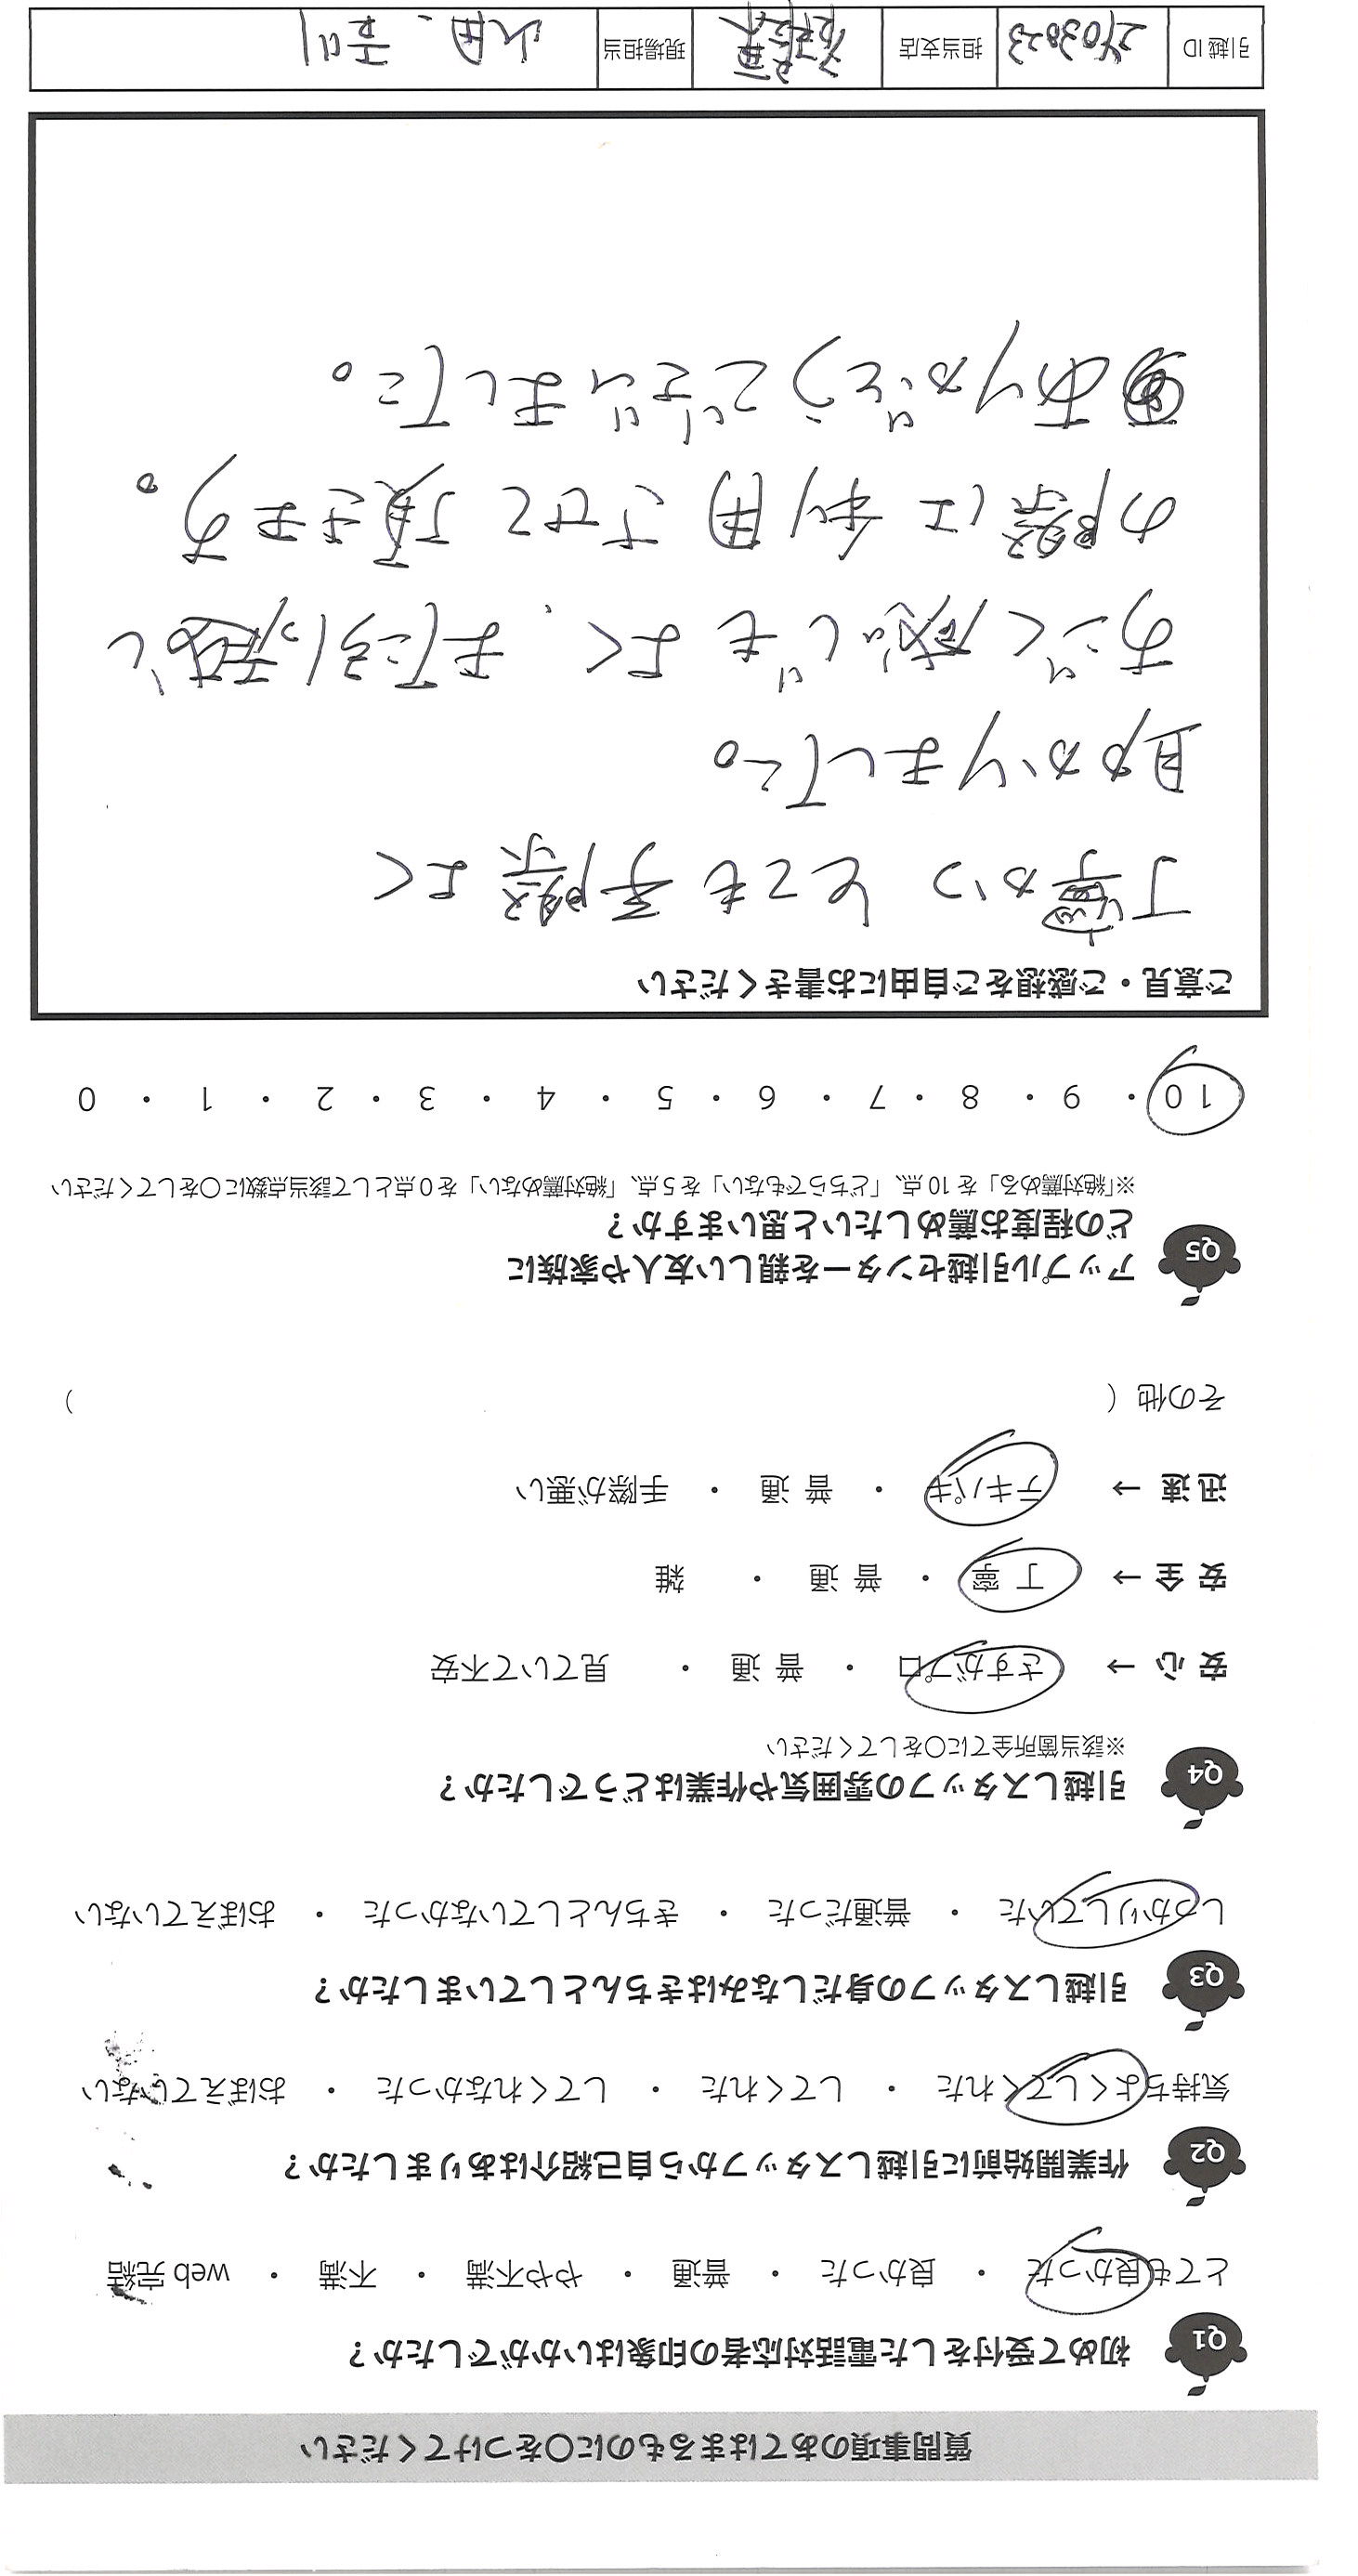 質問事項のあてはまるものに○をつけてください
Q1 初めて受付をした電話対応者の印象はいかがでしたか？
とても良かった ・ 良かった ・ 普通 ・ やや不満 ・ 不満 ・ web完結
Q2 作業開始前に引越しスタッフから自己紹介はありましたか？
気持ちよくしてくれた ・ してくれた ・ してくれなかった ・ おぼえていない
Q3 引越しスタッフの身だしなみはきちんとしていましたか？
しっかりしていた ・ 普通だった ・ きちんとしていなかった ・ おぼえていない
Q4 引越しスタッフの雰囲気や作業はどうでしたか？
※該当箇所全てに○をしてください
安心→ さすがプロ ・ 普通 ・ 見ていて不安
安全→ 丁寧 ・ 普通 ・ 雑
迅速→ テキパキ ・ 普通 ・ 手際が悪い
その他（ ）
Q5 アップル引越センターを親しい友人や家族に
どの程度お薦めしたいと思いますか？
※「絶対薦める」を10点、「どちらでもない」を5点、「絶対薦めない」を0点として該当点数に○をしてください
10 ・ 9 ・ 8 ・ 7 ・ 6 ・ 5 ・ 4 ・ 3 ・ 2 ・ 1 ・ 0
ご意見・ご感想をご自由にお書きください
丁寧かつ とても手際よく
助かりました。
すごく感じもよく、また引っ越し
の際は利用させて頂きます。
ありがとうございました。
引越ID 2403023 担当支店 現場担当